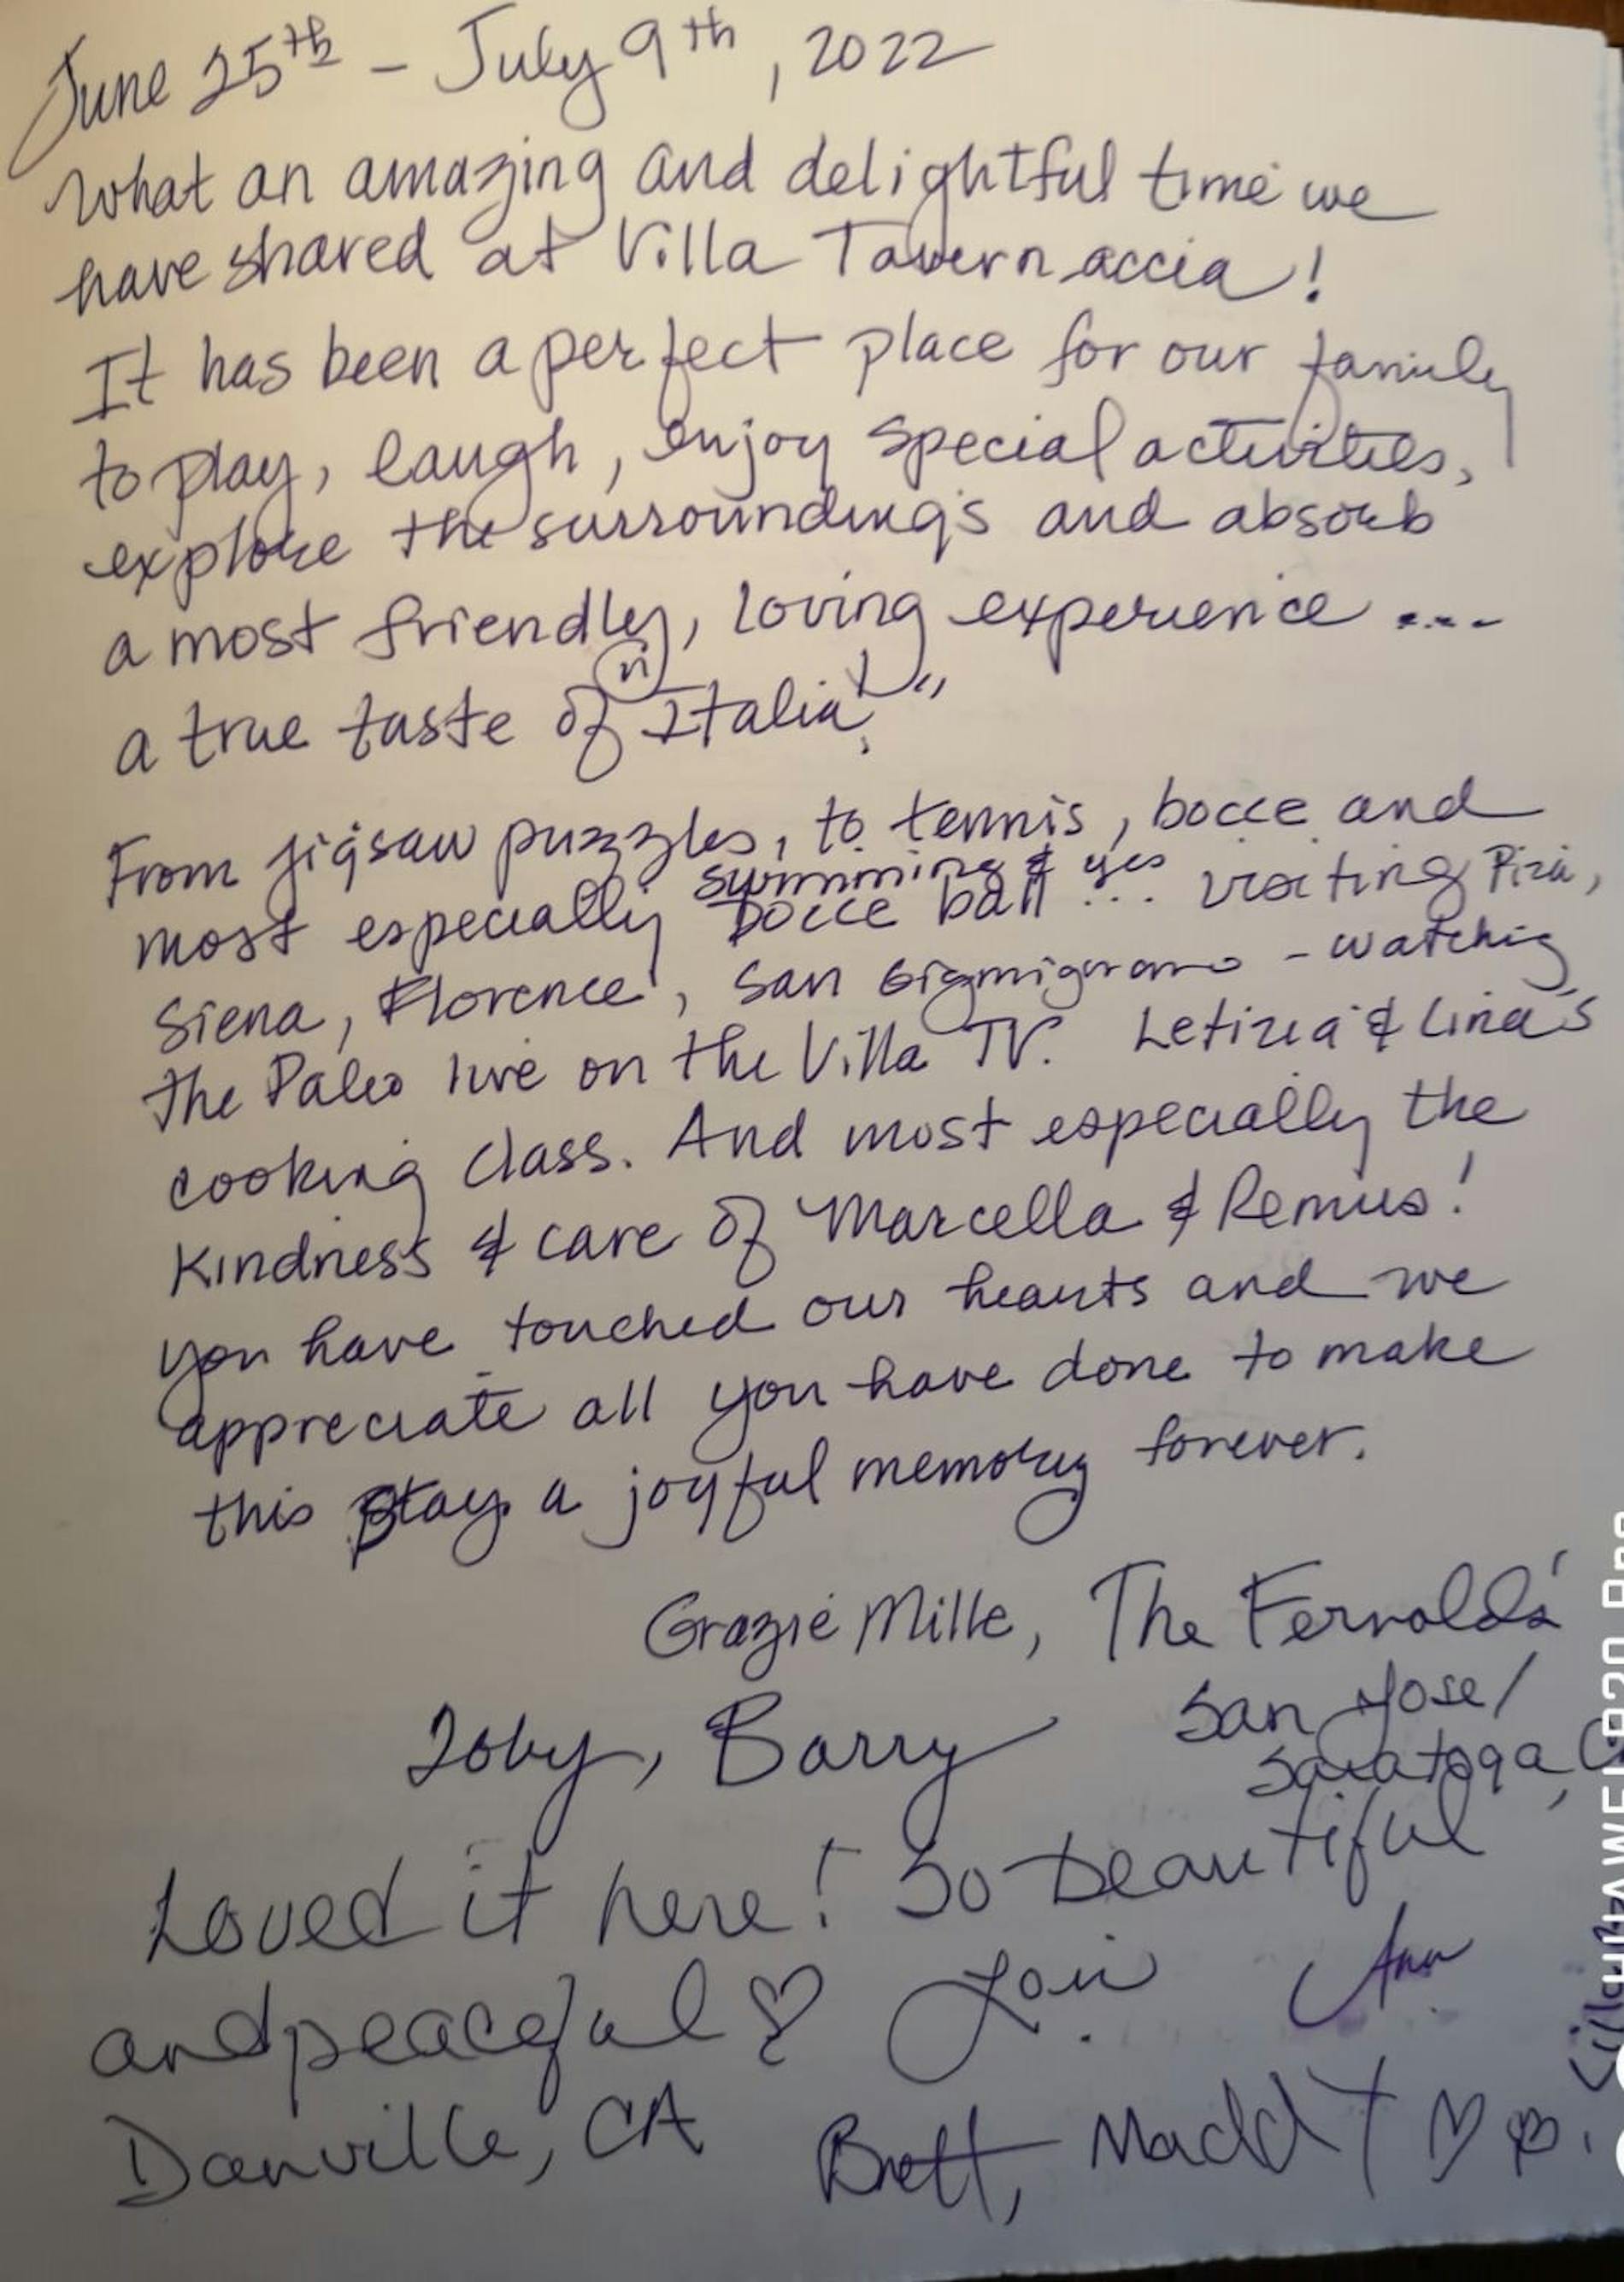 June 25th - July 9th, 2022
What an amazing and delightful time we
have shared at Villa Tavernaccia!
It has been a perfect place for our family
to play, laugh, enjoy special activities,
explore the surroundings and absorb
a most friendly, loving experience ....
a true taste of Italia!"
From jigsaw puzzles, to tennis, bocce and
most especially swimming & yes
bocce ball ... visiting Pisa,
Siena, Florence, San Gigmignano - watching
the Paleo live on the Villa TV. Letizia & Lina's
cooking class. And most especially the
Kindness & care of Marcella & Remus!
You have touched our hearts and we
appreciate all you have done to make
this stay a joyful memory forever.
Grazie Mille, The Fernalds
Toby, Barry
San Jose/
Saratoga,
Loved it here! So beautiful
and peaceful ♡ Lori Ann
Danville, CA Brett, Madd
HUAWEI P30 Pro